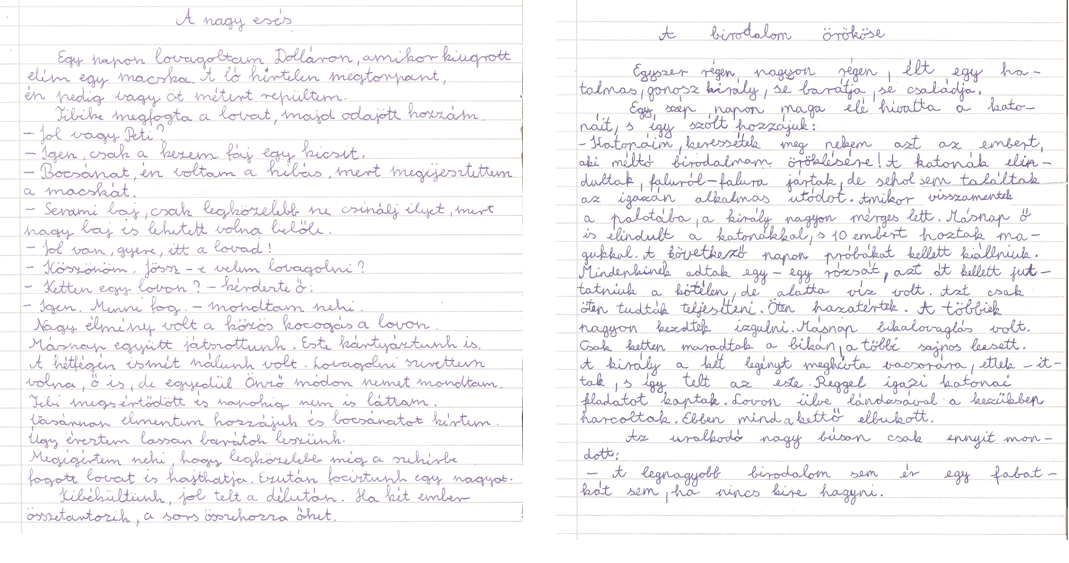 A nagy esés
Egy napon lovagoltam Dolláron, amikor kiugrott
elém egy macska. A ló hirtelen megtorpant,
én pedig vagy öt métert repültem.
Tibike megfogta a lovat, majd odajött hozzám.
- Jól vagy Peti?
- Igen, csak a kezem fáj egy kicsit.
- Bocsánat, én voltam a hibás, mert megijesztettem
a macskát.
- Semmi baj, csak legközelebb ne csinálj ilyet, mert
nagy baj is lehetett volna belőle.
- Jól van, gyere, itt a lovad!
- Köszönöm. Jössz-e velem lovagolni?
- Ketten egy lovon? - kérdezte ő.
- Igen. Menni fog. - mondtam neki.
Nagy élmény volt a közös kocogás a lovon.
Másnap együtt játszottunk. Este kártyáztunk is.
A hétvégén ismét nálunk volt. Lovagolni szerettem
volna, ő is, de egyedül. Önző módon nemet mondtam.
Tibi megsértődött és napokig nem is láttam.
Vasárnap elmentem hozzájuk és bocsánatot kértem.
Úgy éreztem lassan barátok leszünk.
Megígértem neki, hogy legközelebb még a szekérbe
fogott lovat is hajthatja. Ezután fociztunk egy nagyot.
Kibékültünk, jól telt a délután. Ha két ember
összetartozik, a sors összehozza őket.
A birodalom örököse
Egyszer régen, nagyon régen, élt egy ha-
talmas, gonosz király, se barátja, se családja.
Egy szép napon maga elé hivatta a kato-
náit, s így szólt hozzájuk:
- Katonáim, keressétek meg nekem azt az embert,
aki méltó birodalmam öröklésére! A katonák elin-
dultak, faluról-falura jártak, de sehol sem találtak
az igazán alkalmas utódot. Amikor visszamentek
a palotába, a király nagyon mérges lett. Másnap ő
is elindult a katonákkal, s 10 embert hoztak ma-
gukkal. A következő napon próbákat kellett kiállniuk.
Mindenkinek adtak egy-egy rózsát, azt át kellett jut-
tatniuk a kötélen, de alatta víz volt. Azt csak
öten tudták teljesíteni. Öten hazatértek. A többiek
nagyon kezdtek izgulni. Másnap bikalovaglás volt.
Csak ketten maradtak a bikán, a többi sajnos leesett.
A király a két legényt meghívta vacsorára, ettek-it-
tak, s így telt az este. Reggel igazi katonai
fladatot kaptak. Lovon ülve lándzsával a kezükben
harcoltak. Ebben mind a kettő elbukott.
Az uralkodó nagy búsan csak ennyit mon-
dott:
- A legnagyobb birodalom sem ér egy fabat-
kát sem, ha nincs kire hagyni.